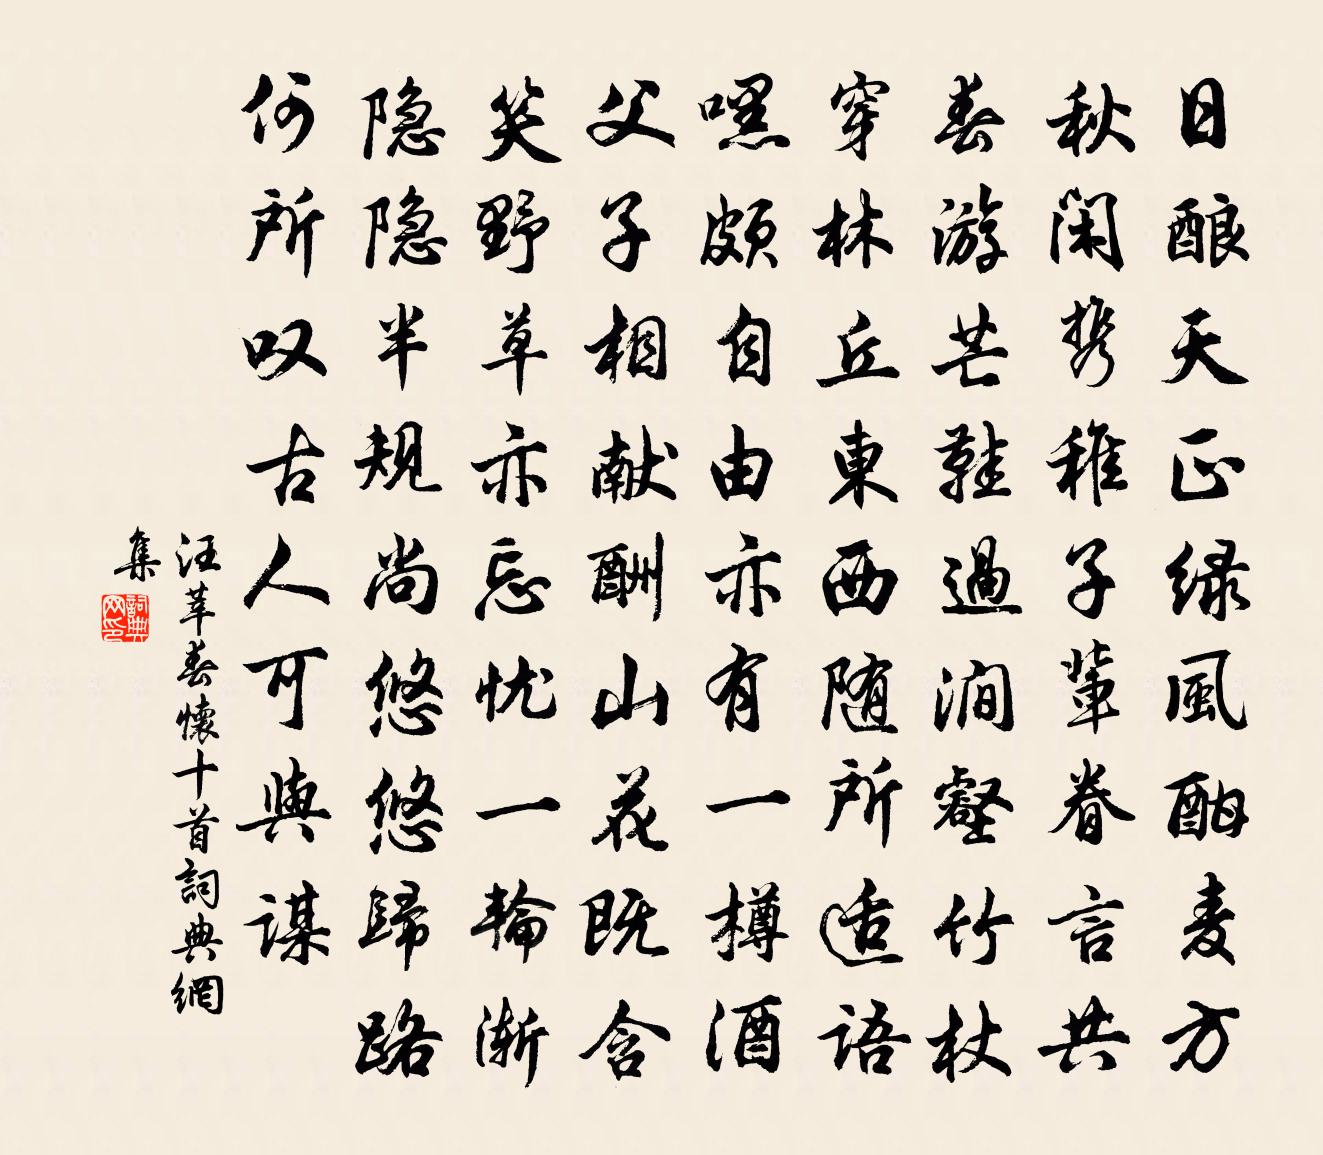 日酿天正绿風酣麦方
秋闲携稚子輩眷言共
春游芒鞋過澗壑竹杖
穿林丘東西随所适语
嘿颇自由亦有一樽酒
父子相献酬山花既含
笑野草亦忘忧一輪渐
隐隐半规尚悠悠歸路
何所叹古人可與谋
汪莘春懷十首詞典網
集
詞典
网印